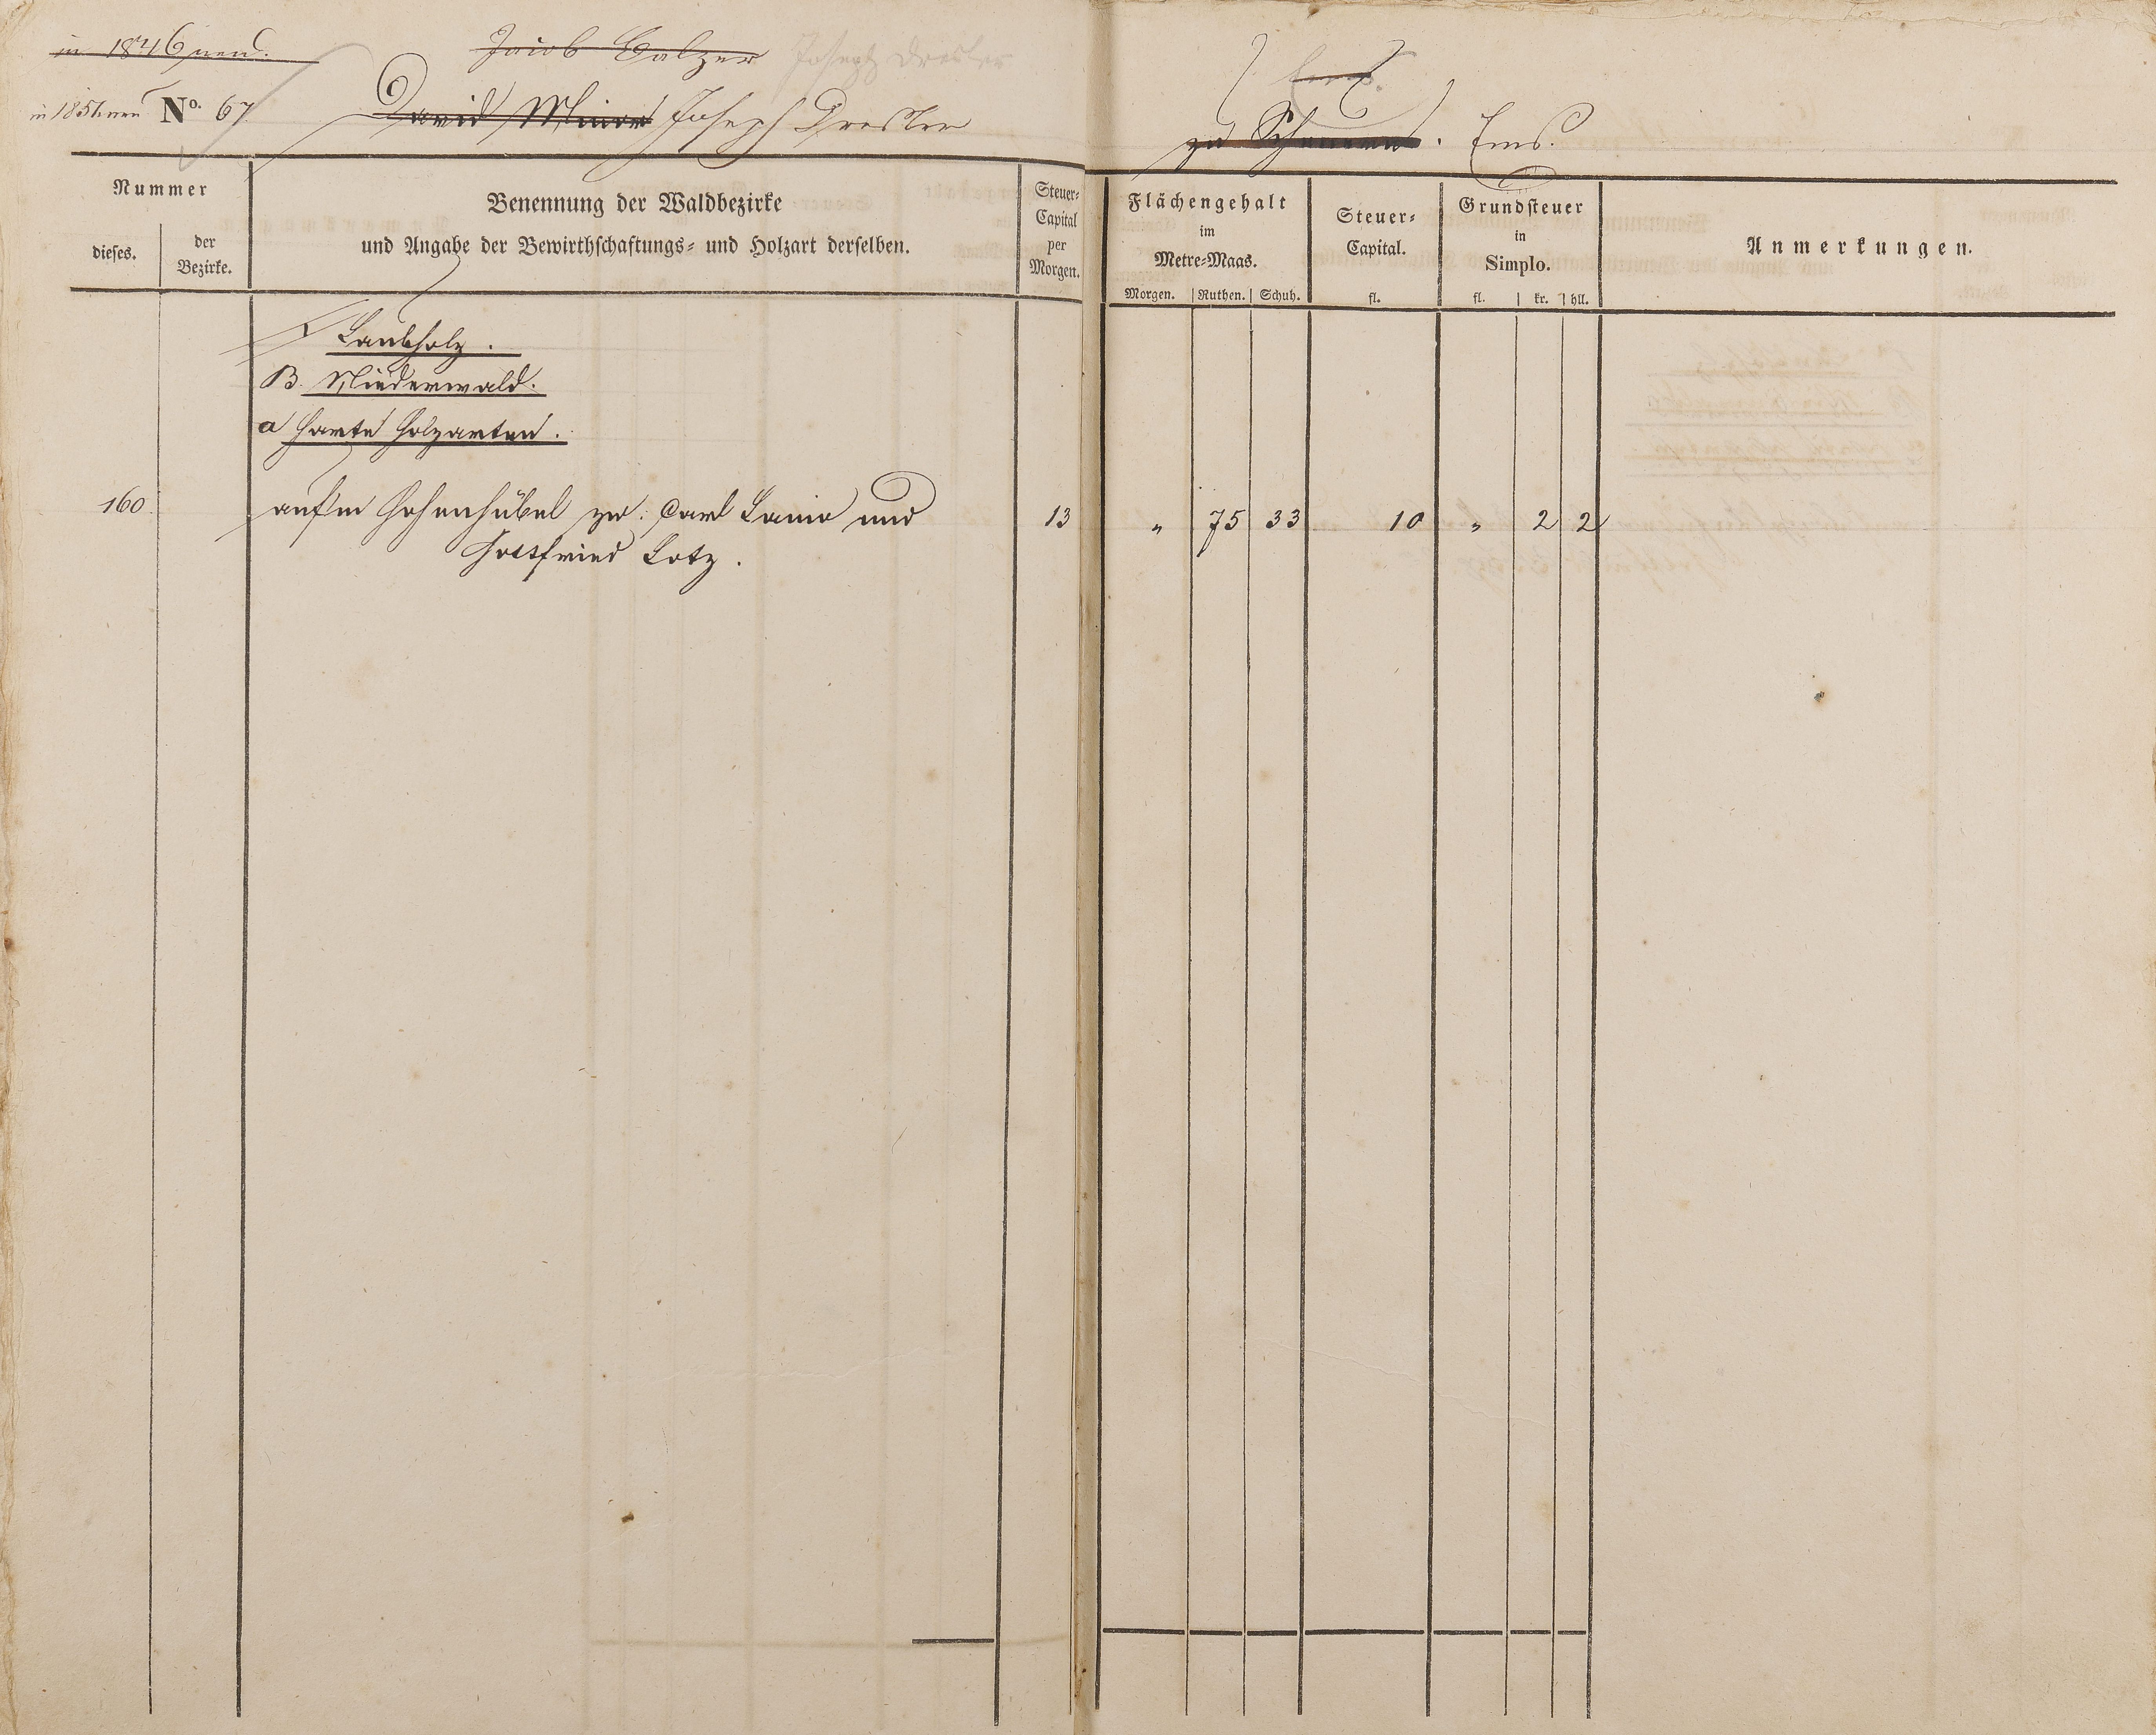 in 1846 neu.
Jacob Balzer Joseph Dresler
Ems.
in 1851 neu No. 67
David Minor Joseph Dresler
zu Scheuern. Ems.
Nummer
dieses.
der
Bezirke.
Benennung der Waldbezirke
und Angabe der Bewirthschaftungs- und Holzart derselben.
Steuer-
Capital
per
Morgen.
Flächengehalt
im
Metre-Maas.
Morgen. Ruthen. Schuh.
Steuer-
Capital.
fl.
Grundsteuer
in
Simplo.
fl. kr. hll.
Anmerkungen.
Laubholz.
B. Niederwald.
a Harte Holzarten.
160. aufm Hohenhübel zw. Carl Lanio und 13 " 75 33 10 " 2 2
Gottfried Lotz.